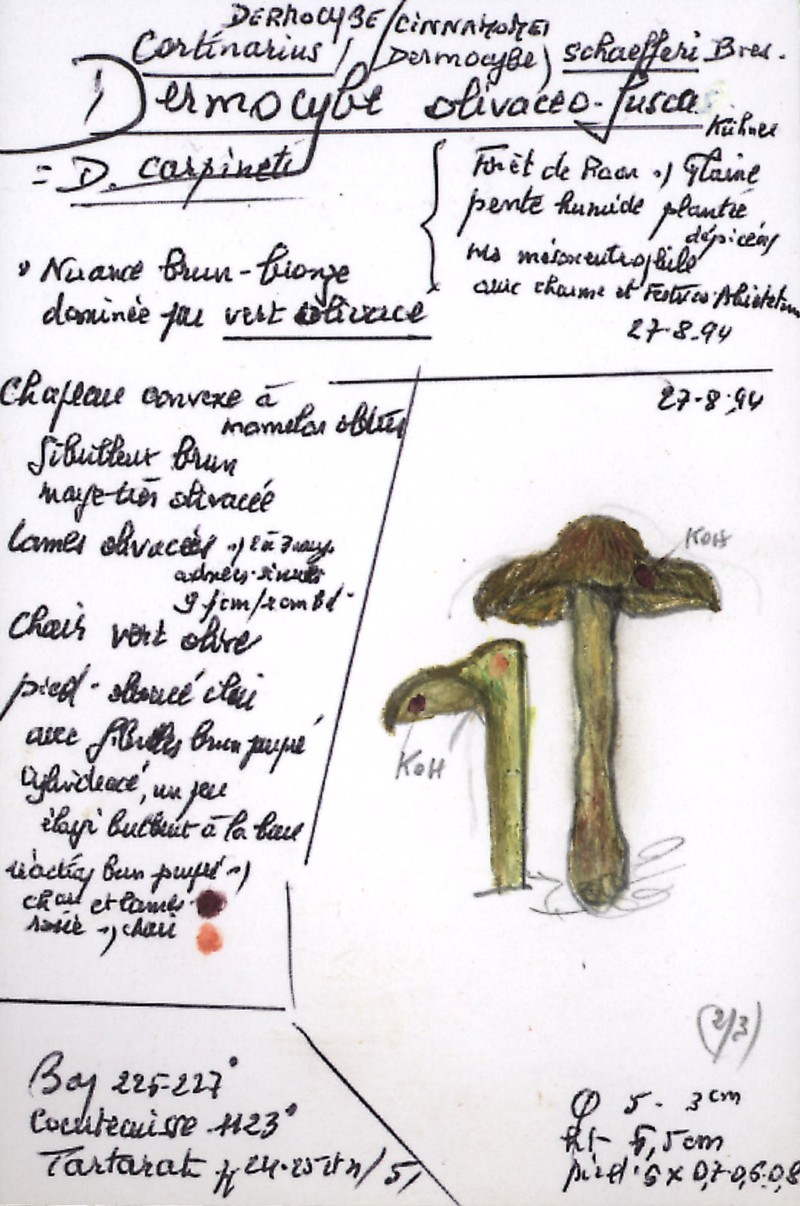 DERMOCYBE / CINNAMOMEI
Cortinarius / Dermocybe) schaefferi Bres.
Dermocybe olivaceo-fusca
Kühner
= D. carpineti
Forêt de
pente humide plantée
d'épicéas
avec charme et
27-8-94
Nuance brun-bronze
dominée par vert olivacé
27-8-94
Chapeau convexe à
mamelon obtus
fibrilleux brun
marge très olivacée
Lames olivacées
adnées-sinuées
Chair vert olive
pied - olivacé clair
avec fibrilles brun pourpré
cylindracé, un peu
élargi bulbeux à la base
réaction brun pourpré
chair et lames
rosée chair
KOH
KOH
(2/3)
Bon 225-227°
Courtecuisse 1123°
Tartarat 24-25
Φ 5 - 3 cm
ht - 5,5 cm
pied: 5 x 0,7-0,6-0,8